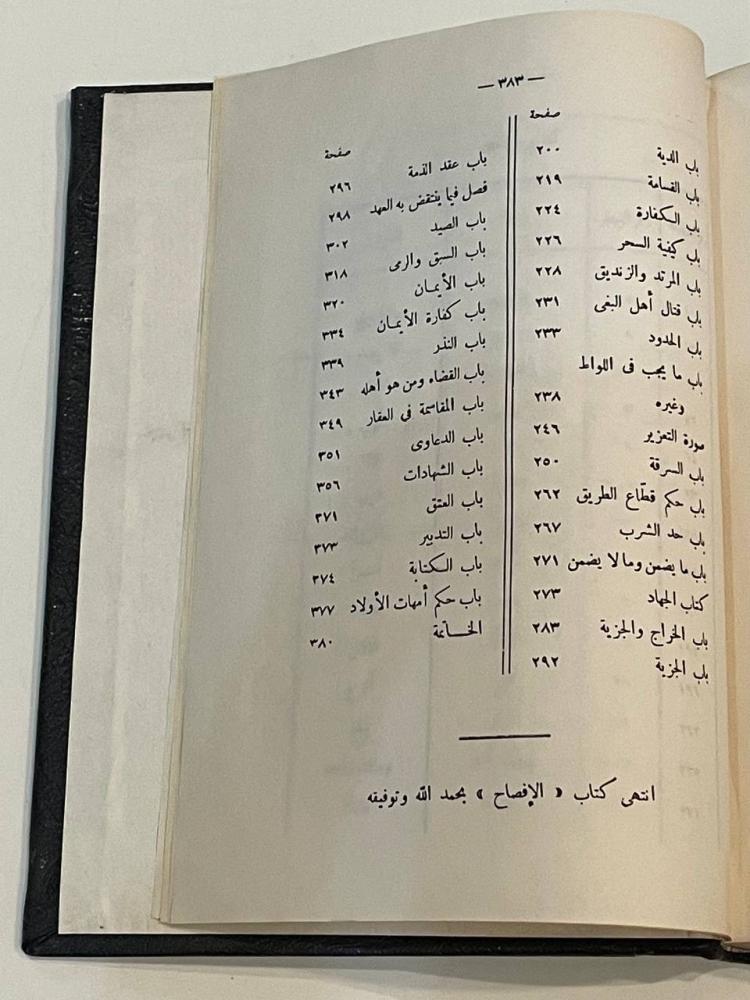 — ٣٨٣ —
صفحة
باب الدية ٢٠٠
باب القسامة ٢١٩
باب الكفارة ٢٢٤
باب كيفية السحر ٢٢٦
باب المرتد والزنديق ٢٢٨
باب قتال أهل البغى ٢٣١
باب الحدود ٢٣٣
باب ما يجب فى اللواط
وغيره ٢٣٨
صورة التعزير ٢٤٦
باب السرقة ٢٥٠
باب حكم قطّاع الطريق ٢٦٢
باب حد الشرب ٢٦٧
باب ما يضمن وما لا يضمن ٢٧١
كتاب الجهاد ٢٧٣
باب الخراج والجزية ٢٨٣
باب الجزية ٢٩٢
صفحة
باب عقد الذمة ٢٩٦
فصل فيما ينتقض به العهد ٢٩٨
باب الصيد ٣٠٢
باب السبق والرمى ٣١٨
باب الأيمان ٣٢٠
باب كفارة الأيمان ٣٣٤
باب النذر ٣٣٩
باب القضاء ومن هو أهله ٣٤٣
باب المقاسمة فى العقار ٣٤٩
باب الدعاوى ٣٥١
باب الشهادات ٣٥٦
باب العتق ٣٧١
باب التدبير ٣٧٣
باب الكتابة ٣٧٤
باب حكم أمهات الأولاد ٣٧٧
الخاتمة ٣٨٠
انتهى كتاب « الإفصاح » بحمد الله وتوفيقه